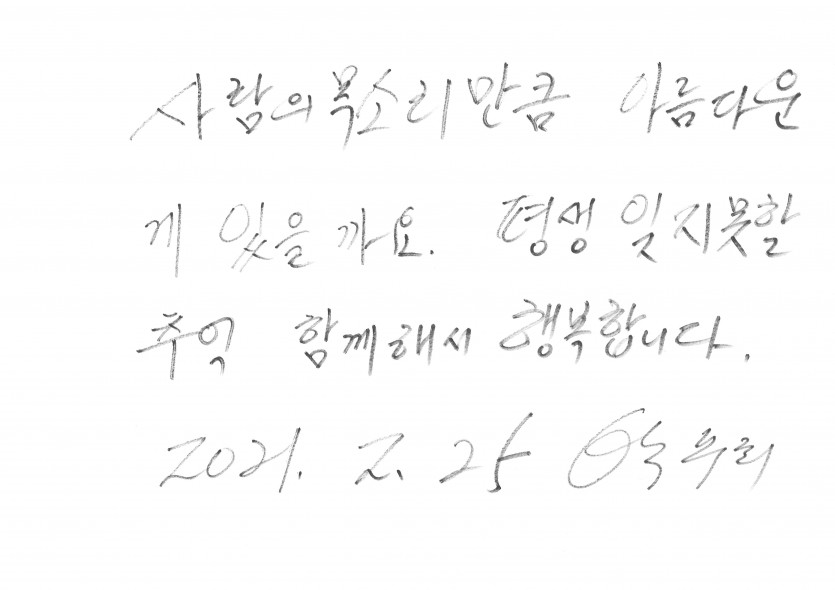 사람의목소리만큼 아름다운
게 있을 까요. 평생 잊지못할
추억 함께해서 행복합니다.
2021. 2. 25